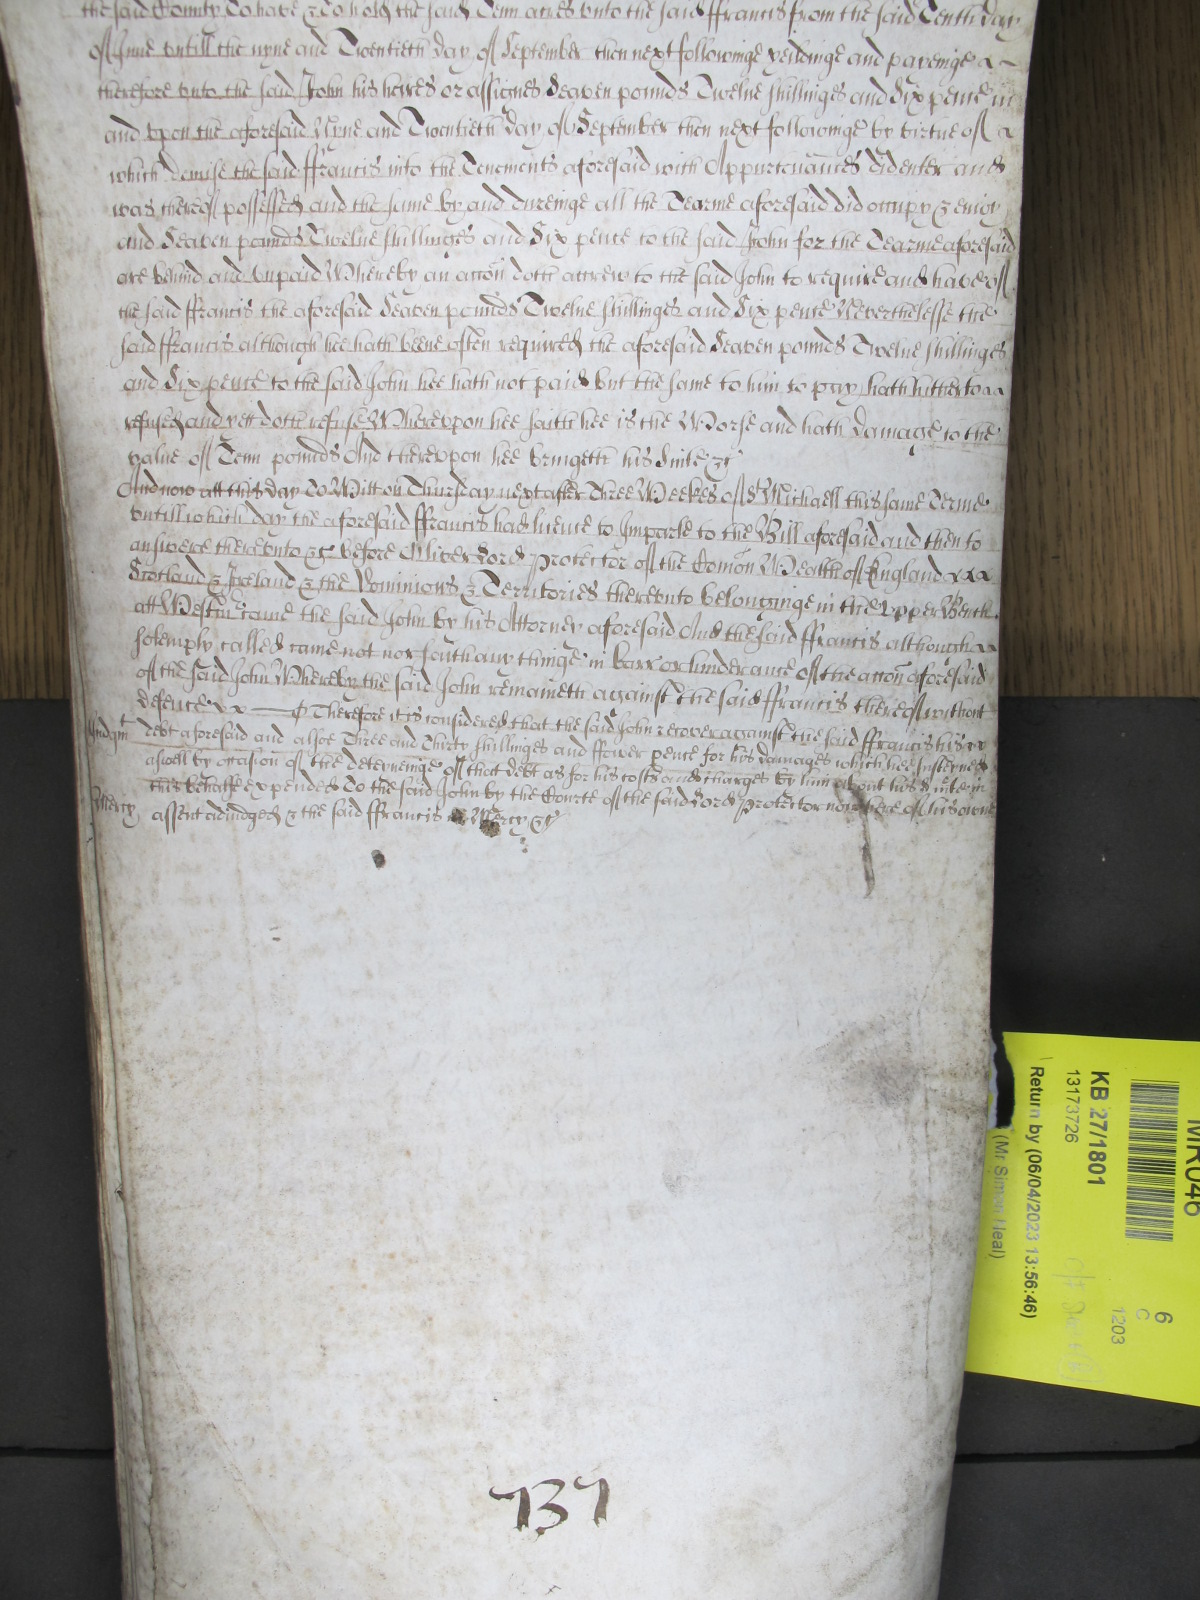 the said County To have & To hold the said Tenn acres vnto the said ffrancis from the said Tenth day
of June vntill the nyne and Twentieth day of September then next followinge yeildinge and payeinge
therefore vnto the said John his heires or assignes Seaven pounds Twelve shillinges and Six pence in
and vpon the aforesaid Nyne and Twentieth day of September then next followinge by virtue of
which demise the said ffrancis into the Tenements aforesaid with Appurtenances did enter and
was thereof possessed and the same by and dureinge all the Tearme aforesaid did occupy & enioy
and Seaven pounds Twelve shillinges and Six pence to the said John for the Tearme aforesaid
are behind and vnpaid Whereby an accon doth accrew to the said John to require and have of
the said ffrancis the aforesaid Seaven pounds Twelve shillinges and Six pence Neverthelesse the
said ffrancis although hee hath beene often required the aforesaid Seaven pounds Twelve shillinges
and Six pence to the said John hee hath not paid but the same to him to pay hath hitherto
refused and yett doth refuse Wherevpon hee saith hee is the Worse and hath damage to the
value of Tenn pounds And therevpon hee bringeth his Suite &c
And now att this day To Witt on Thursday next after Three Weekes of St Michaell this same Terme
vntill which day the aforesaid ffrancis had licence to Imparle to the Bill aforesaid and then to
answere therevnto &c before Oliver Lord Protector of the Comon Wealth of England
Scotland & Ireland & the Dominions & Territories therevnto belonginge in the vpper Bench
att Westm came the said John by his Attorney aforesaid And the said ffrancis although
solemply called came not nor saith any thinge in barr or hinderance of the accon aforesaid
of the said John Whereby the said John remaineth against the said ffrancis thereof without
defence Therefore it is considered that the said John recover against the said ffrancis his
Judgm debt aforesaid and alsoe Three and Thirty shillinges and ffower pence for his damages which hee susteyned
aswell by occasion of the deteyneinge of that debt as for his costs and charges by him about his suite in
this behalfe expended To the said John by the Courte of the said Lord Protector now here of his owne
Mercy assent adiudged & the said ffrancis in Mercy &c
737
MR046
KB 27/1801
13173726
Return by (06/04/2023 13:56:46)
(Mr Simon Neal)
6
C
1203